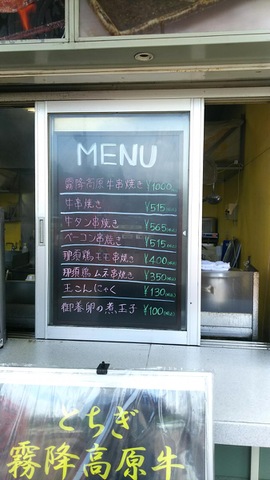 MENU
霧降高原牛串焼き ¥1000(税込)
牛串焼き ¥515(税込)
牛タン串焼き ¥565(税込)
ベーコン串焼き ¥515(税込)
那須鶏モモ串焼き ¥400(税込)
那須鶏ムネ串焼き ¥350(税込)
玉こんにゃく ¥130(税込)
御養卵の煮玉子 ¥100(税込)
とちぎ
霧降高原牛